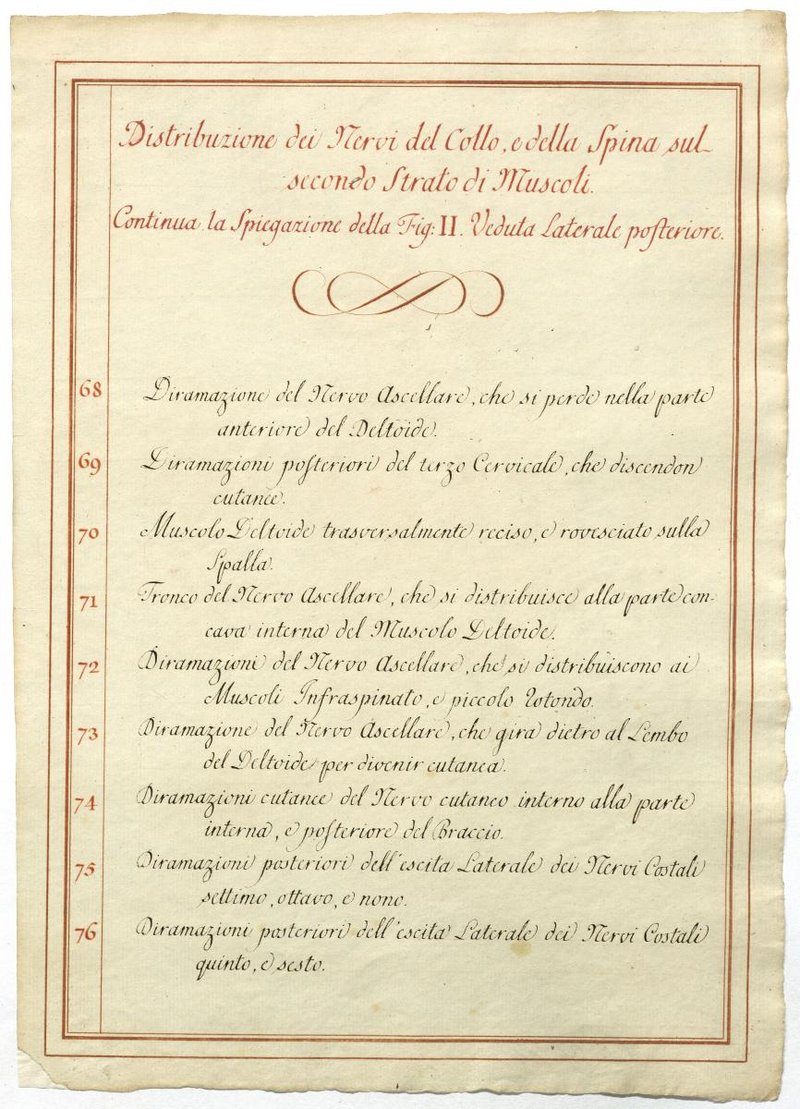 Distribuzione dei Nervi del Collo, e della Spina sul
secondo Strato di Muscoli.
Continua la Spiegazione della Fig: II. Veduta Laterale posteriore.
68 Diramazione del Nervo Ascellare, che si perde nella parte
anteriore del Deltoide.
69 Diramazioni posteriori del terzo Cervicale, che discendon
cutanee.
70 Muscolo Deltoide trasversalmente reciso, e rovesciato sulla
Spalla.
71 Tronco del Nervo Ascellare, che si distribuisce alla parte con-
cava interna del Muscolo Deltoide.
72 Diramazioni del Nervo Ascellare, che si distribuiscono ai
Muscoli Infraspinato, e piccolo Rotondo.
73 Diramazione del Nervo Ascellare, che gira dietro al Lembo
del Deltoide per divenir cutanea.
74 Diramazioni cutanee del Nervo cutaneo interno alla parte
interna, e posteriore del Braccio.
75 Diramazioni posteriori dell'escita Laterale dei Nervi Costali
settimo, ottavo, e nono.
76 Diramazioni posteriori dell'escita Laterale dei Nervi Costali
quinto, e sesto.